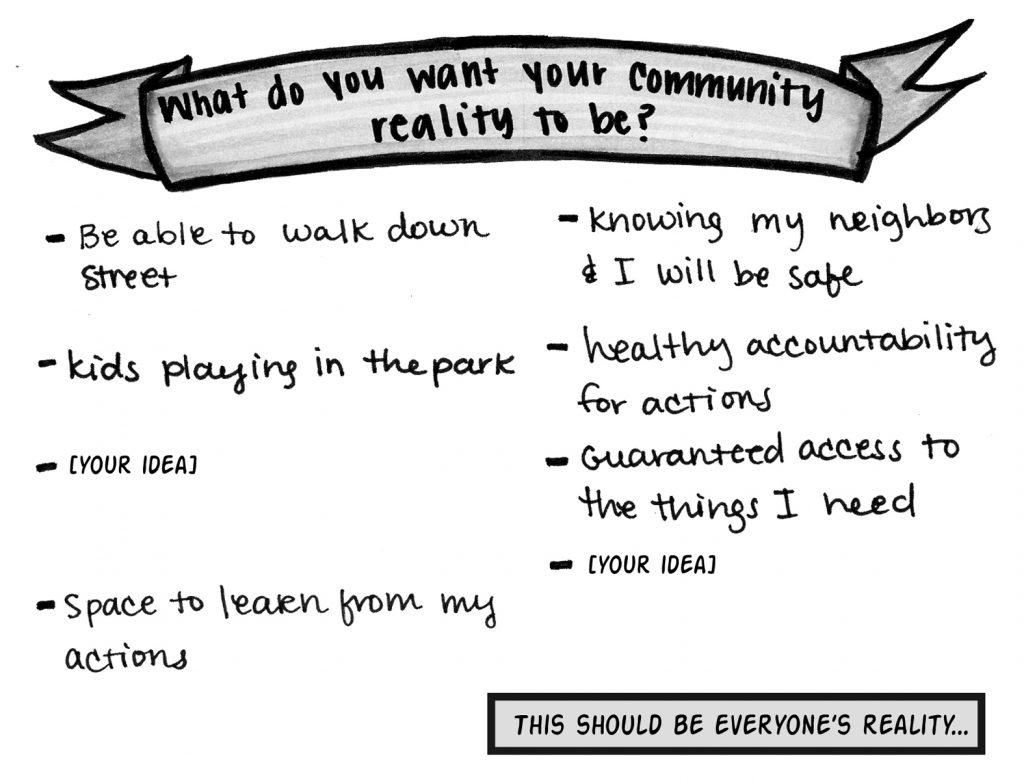 What do you want your community
reality to be?
- Be able to walk down
street
- kids playing in the park
- [YOUR IDEA]
- Space to learn from my
actions
- knowing my neighbors
& I will be safe
- healthy accountability
for actions
- Guaranteed access to
the things I need
- [YOUR IDEA]
THIS SHOULD BE EVERYONE'S REALITY...